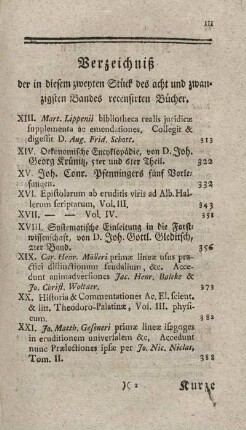 III
Verzeichniß
der in diesem zweyten Stück des acht und zwan-
zigsten Bandes recensirten Bücher.
XIII. Mart. Lippenii bibliotheca realis juridicæ
supplementa ac emendationes, Collegit &
digessit D. Aug. Frid. Schott. 313
XIV. Oekonomische Encyklopädie, von D. Joh.
Georg Krünitz, 5ter und 6ter Theil. 322
XV. Joh. Conr. Pfenningers fünf Vorle-
sungen. 332
XVI. Epistolarum ab eruditis viris ad Alb. Hal-
lerum scriptarum, Vol. III. 343
XVII. — — Vol. IV. 351
XVIII. Systematische Einleitung in die Forst-
wissenschaft, von D. Joh. Gottl. Gleditsch,
2ter Band. 356
XIX. Car. Henr. Mölleri primæ lineæ usus pra-
ctici distinctionum feudalium, &c. Accedunt
animadversiones Jac. Henr. Balcke &
Jo. Christ. Woltaer. 373
XX. Historia & Commentationes Ac. El. scient.
& litt. Theodoro-Palatinæ, Vol. III. physi-
cum. 382
XXI. Jo. Matth. Gesneri primæ lineæ isagoges
in eruditionem universalem &c. Accedunt
nunc Prælectiones ipsæ per Jo. Nic. Niclas,
Tom. II. 388
)( 2 Kurze